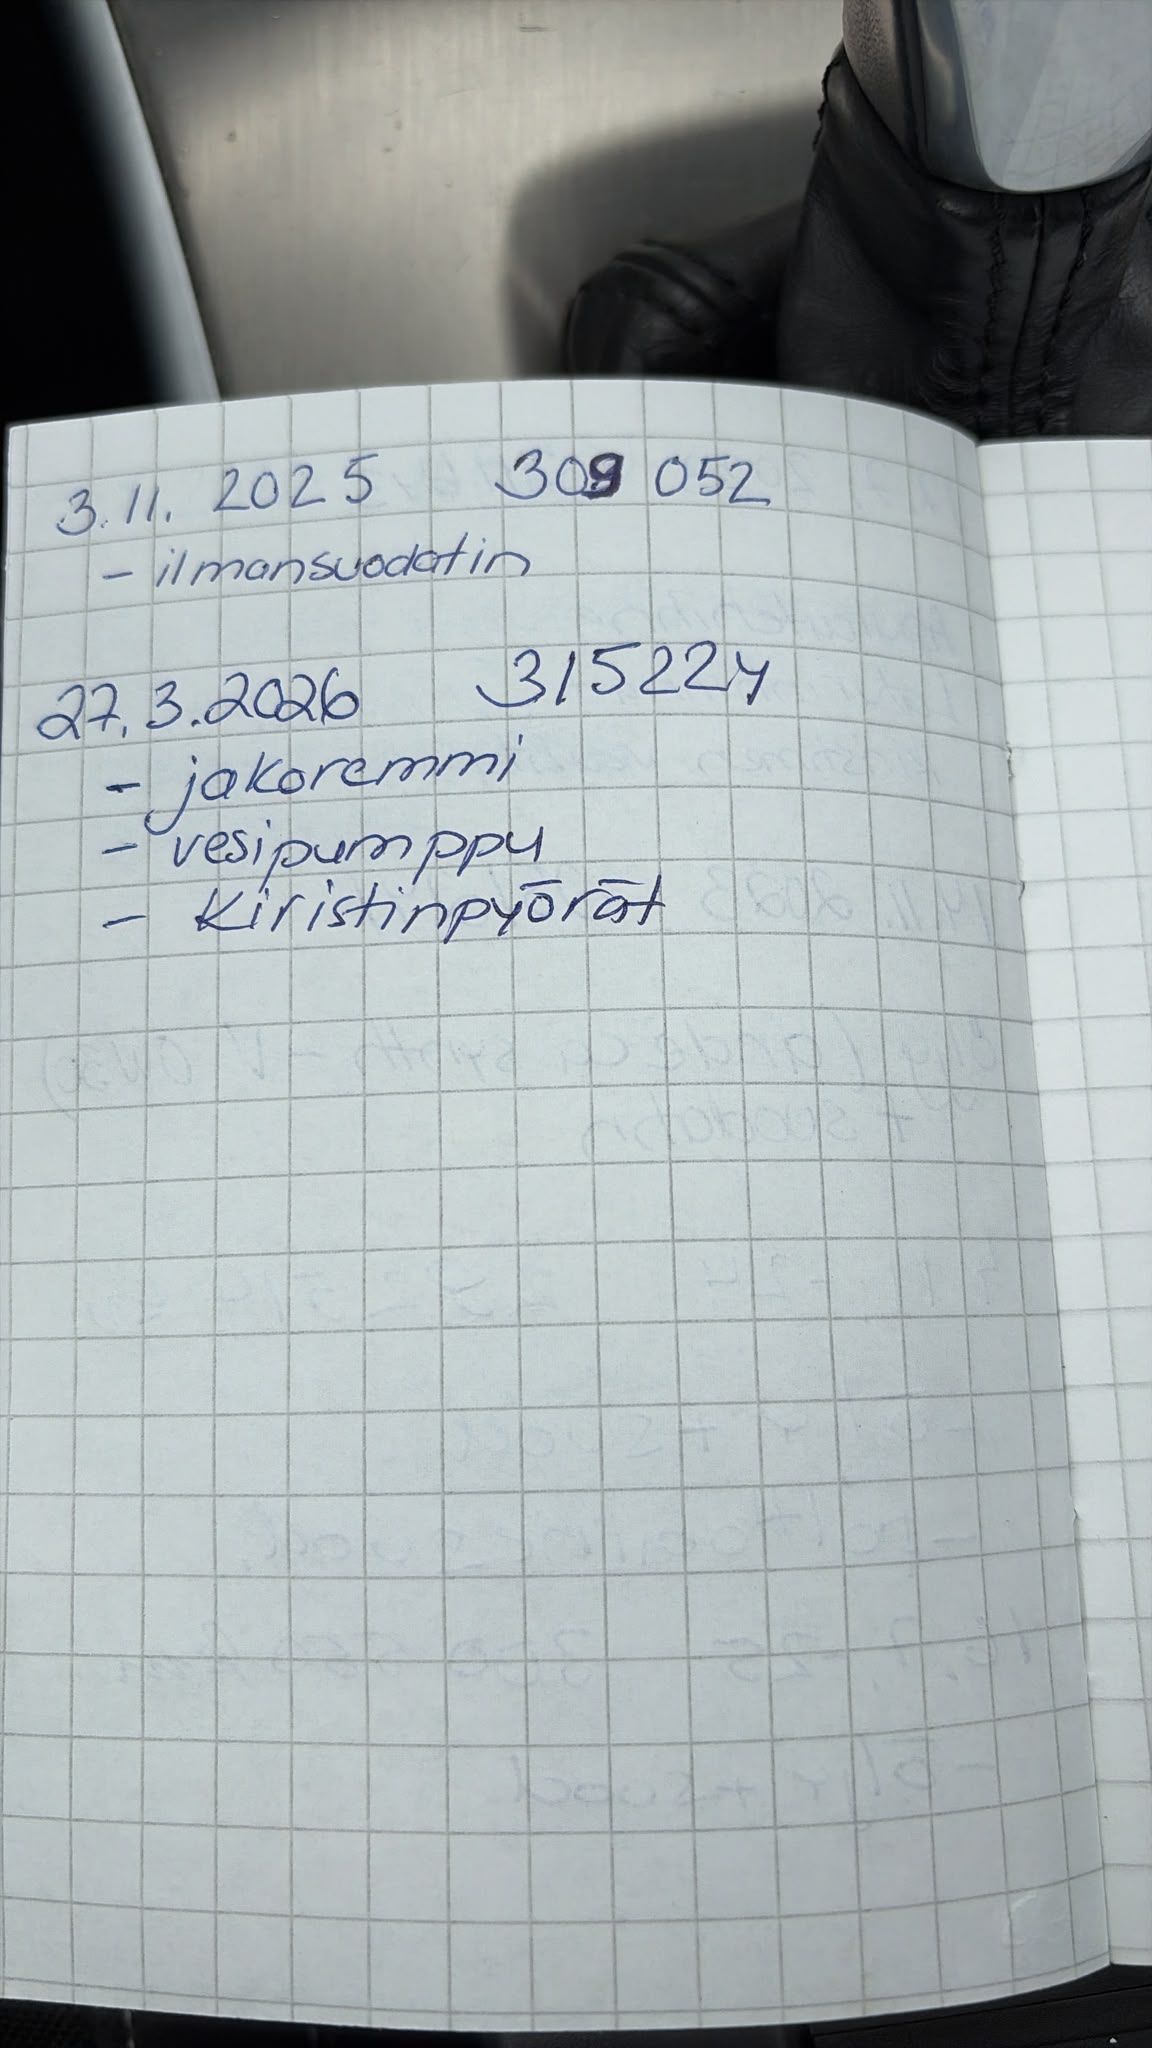 3.11. 2025 309 052
- ilmansuodatin
27.3.2026 315224
- jakoremmi
- vesipumppu
- Kiristinpyörät